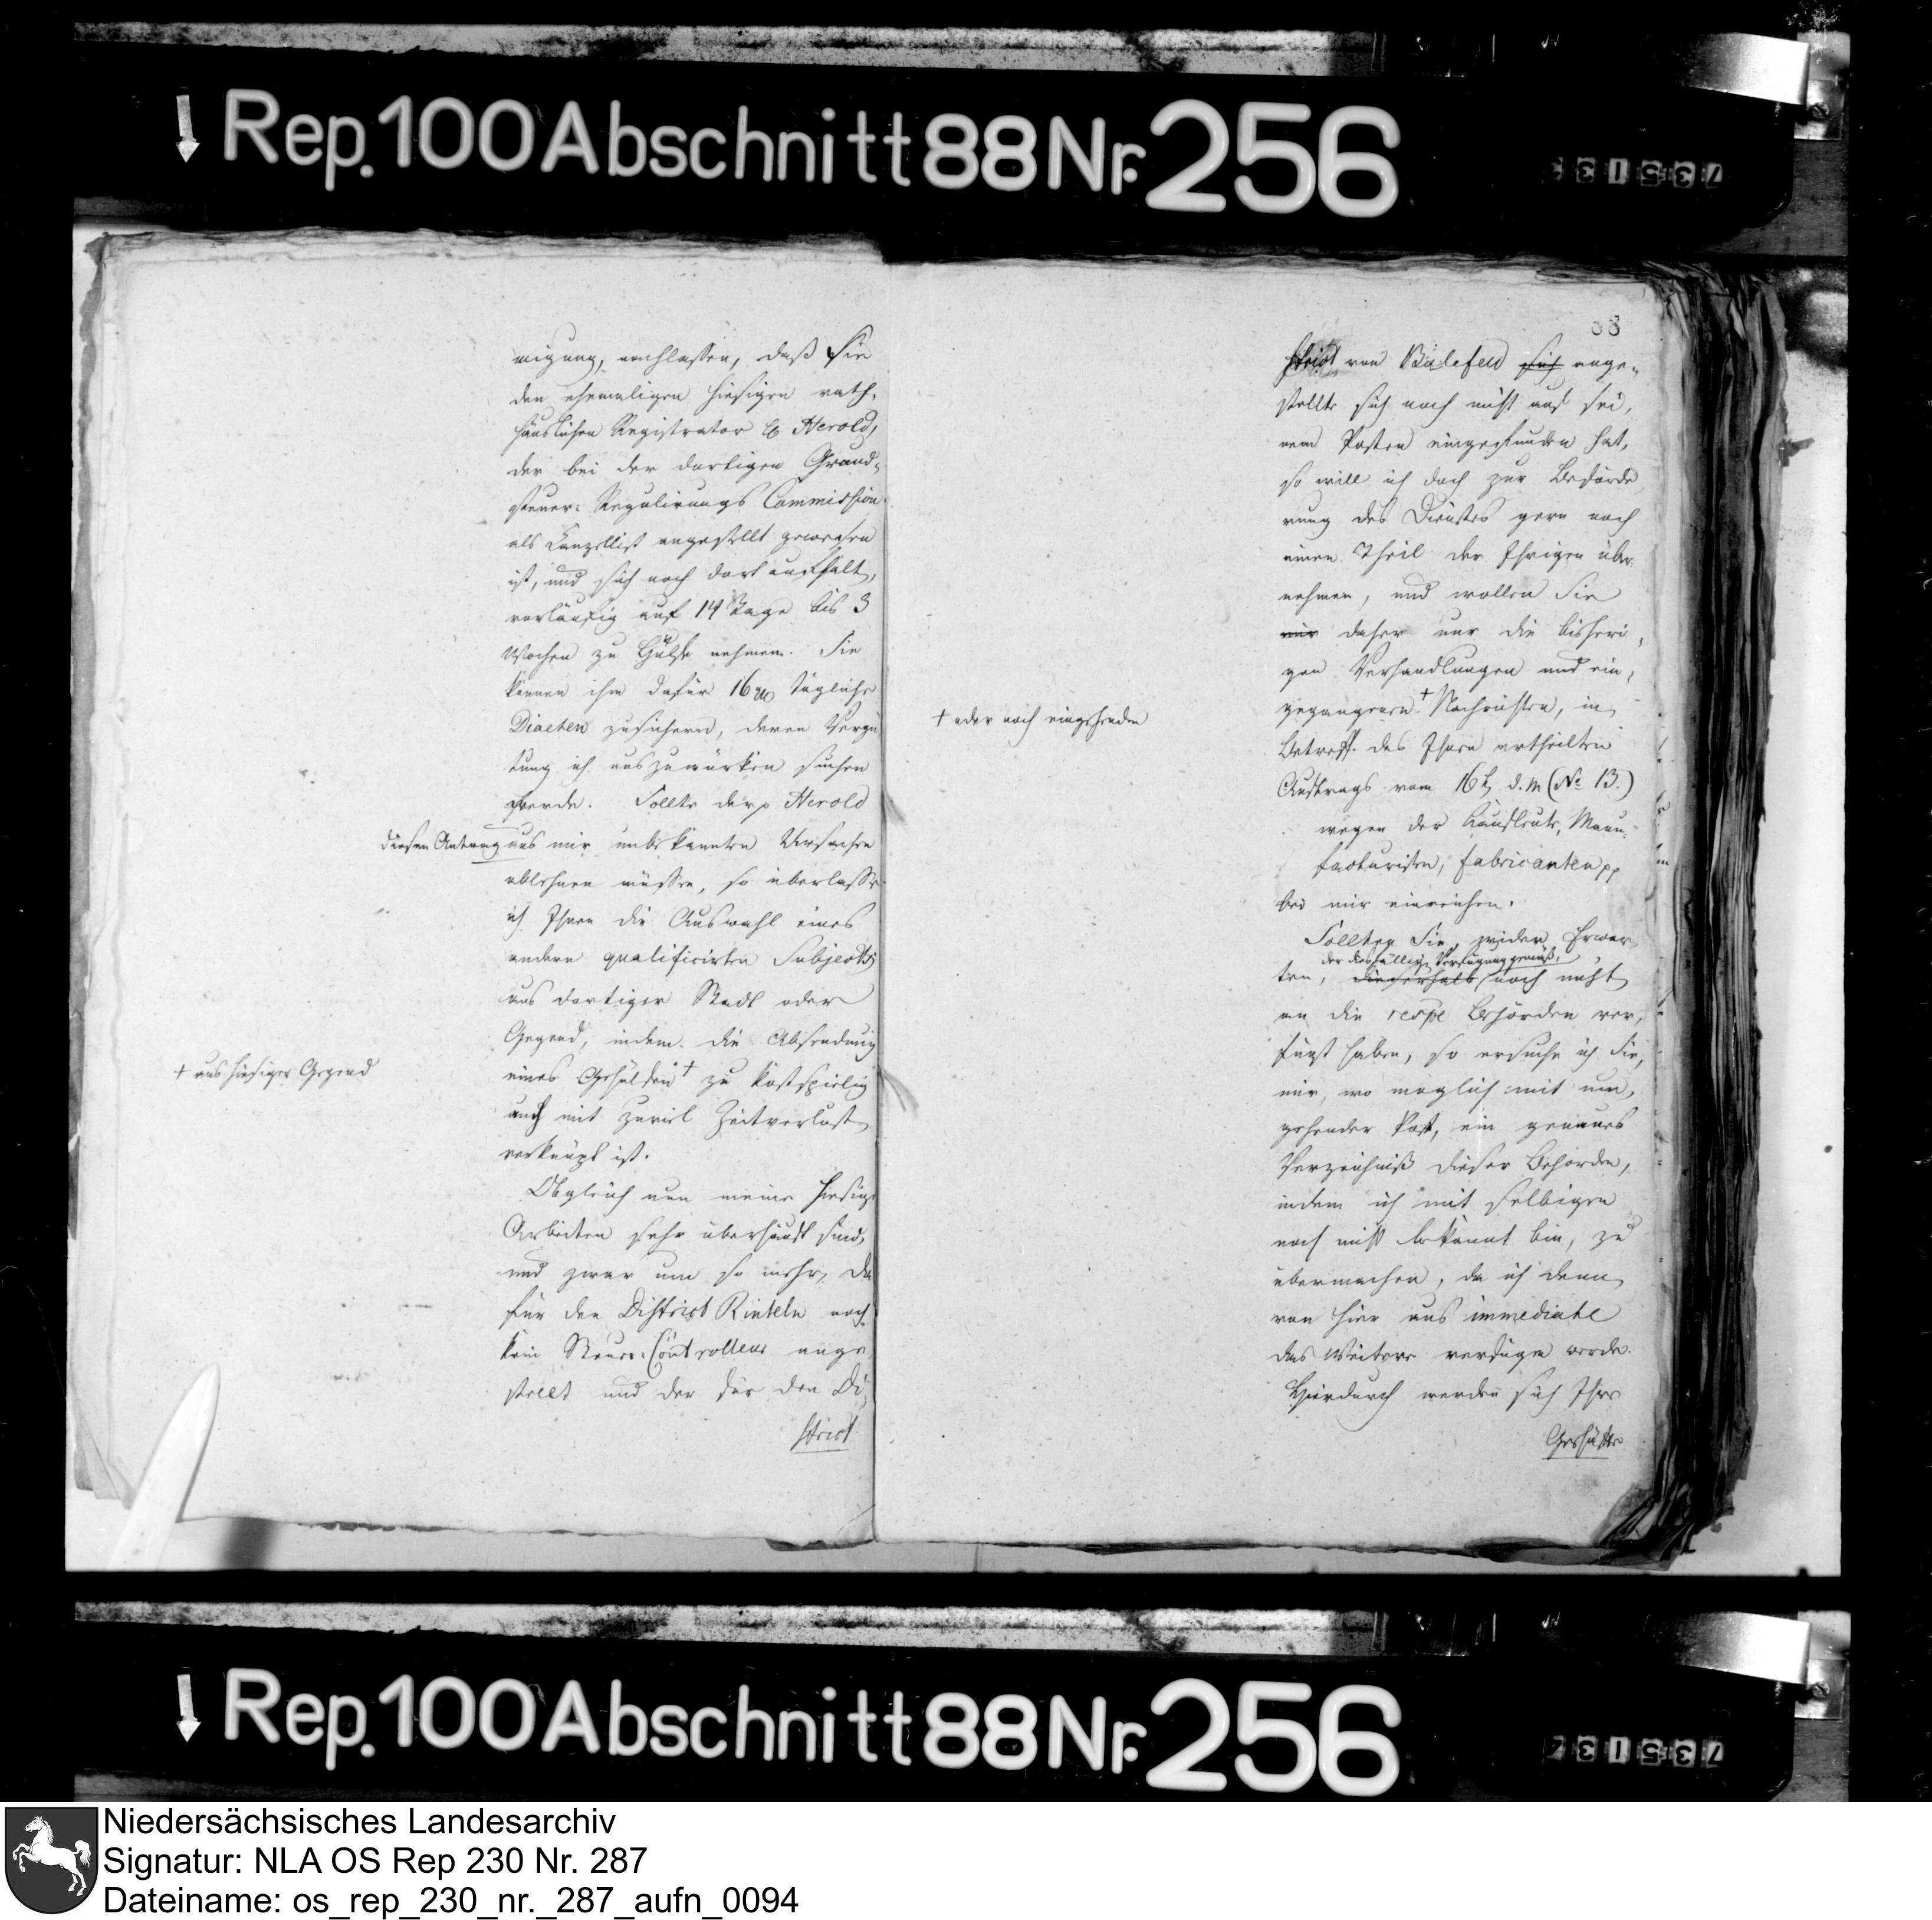 Rep. 100 Abschnitt 88 Nr. 256
migung, nachlassen, daß Sie
den ehemaligen hiesigen rath-
häuslichen Registrator Herold,
der bei der dortigen Grund-
steuer-Regulirungs Commission
als Canzellist angestellt gewesen
ist, und sich noch dort aufhält,
vorläufig auf 14 Tage bis 3
Wochen zu Hülfe nehmen. Sie
können ihm dafür 16 täglich
Diaeten zusichern, deren Vergü
tung ich auszuwürken suchen
werde. Sollte der p Herold
diesen Antrag aus mir unbekannten Ursachen
ablehnen müssen, so überlasse
ich Ihnen die Auswahl eines
andern qualificirten Subjects
aus dortiger Stadt oder
Gegend, indem die Absendung
eines Gehülfen † zu kostspielig
† aus hiesiger Gegend
auch mit zuviel Zeitverlust
verknüpft ist.
Obgleich nun meine hiesige
Arbeiten sehr überhäuft sind,
und zwar um so mehr, da
für den District Rinteln noch
kein Steuer-Controlleur ange
stellt und der für den Di-
strict
88
strict von Bielefeld sich ange-
stellte sich noch nicht auf sei-
nem Posten eingefunden hat,
so will ich doch zur Beförde
rung des Dienstes gern noch
einen Theil der Ihrigen über
nehmen, und wollen Sie
mir daher nur die bisheri-
gen Verhandlungen und ein-
gegangenen † Nachrichten, in
† oder noch eingehenden
Betreff des Ihnen ertheilten
Auftrags vom 16t d. M (No 13.)
wegen der Kaufleute, Manu-
facturisten, Fabricanten pp
bei mir einreichen.
Sollten Sie, wider Erwar-
der diesfälligen Verfügung gemäß,
ten, dieserhalb noch nicht
an die respe Behörden ver-
fügt haben, so ersuche ich Sie,
mir, wo moglich mit um-
gehender Post, ein genaues
Verzeichniß dieser Behörden,
indem ich mit selbigen
noch nicht bekannt bin, zu
übermachen, da ich denn
von hier aus immediate
das Weitere verfügen werde.
Hierdurch werden sich Ihre
Geschäfte
Rep. 100 Abschnitt 88 Nr. 256
Niedersächsisches Landesarchiv
Signatur: NLA OS Rep 230 Nr. 287
Dateiname: os_rep_230_nr._287_aufn_0094